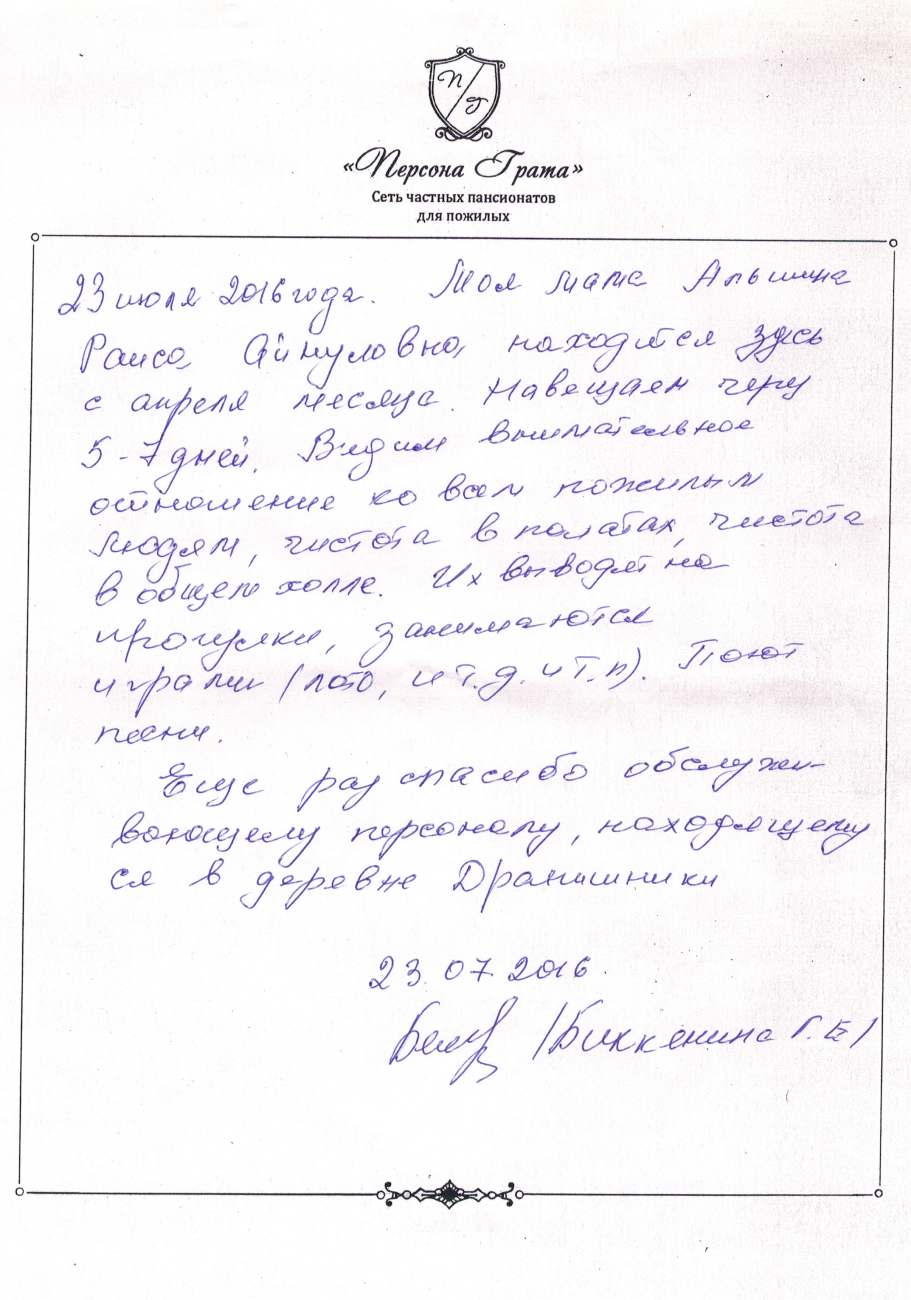 П Г
«Персона Грата»
Сеть частных пансионатов
для пожилых
23 июля 2016 года. Моя мама Альшина
Раиса Айнуловна, находится здесь
с апреля месяца. Навещаем через
5-7 дней. Видим внимательное
отношение ко всем пожилым
людям, чистота в палатах, чистота
в общем холле. Их выводят на
прогулки, занимаются
играми (лото, и т.д. и т.п). Поют
песни.
Еще раз спасибо обслужи-
вающему персоналу, находящему
ся в деревне Дранишники
23.07.2016.
/Биккенина Г. Е/